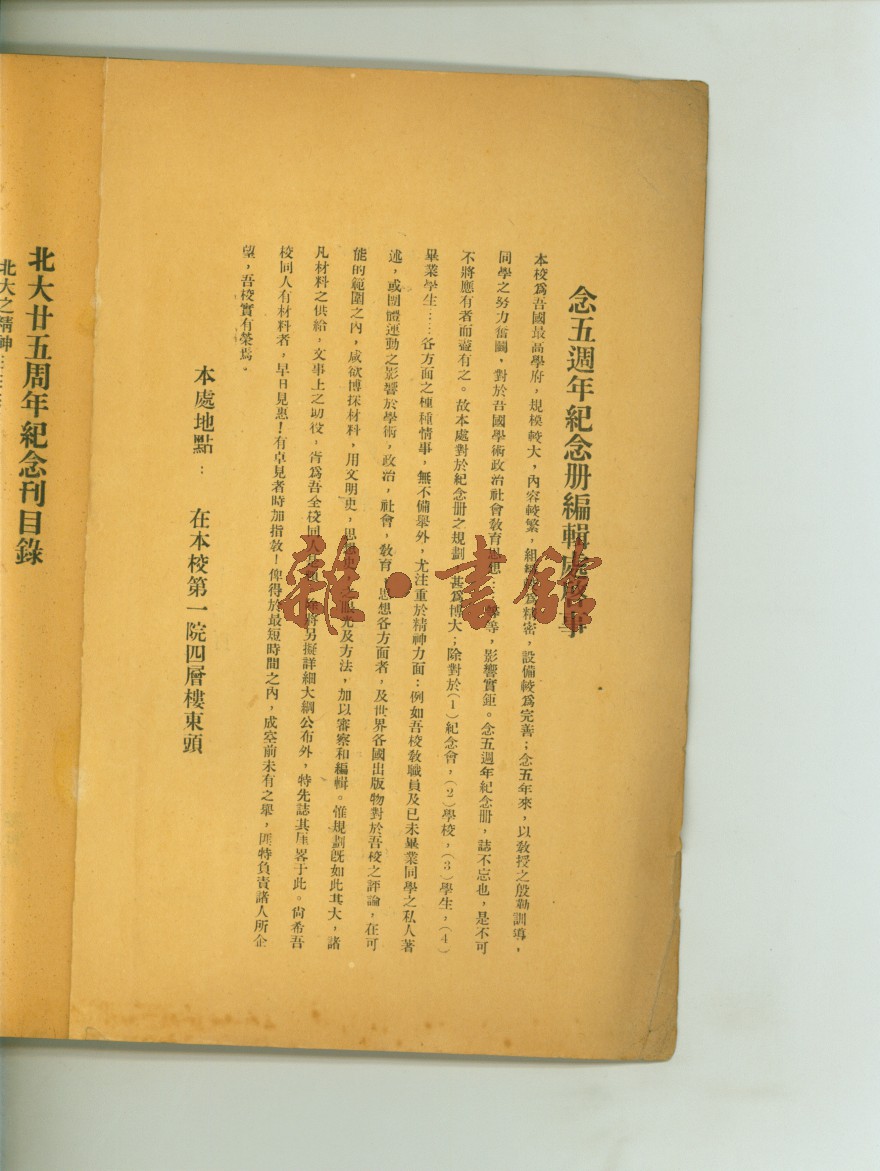 念五週年紀念册編輯處啓事
本校爲吾國最高學府，規模較大，內容較繁，組織較爲精密，設備較爲完善；念五年來，以敎授之殷勤訓導，
同學之努力奮鬭，對於吾國學術政治社會敎育思想……等等，影響實鉅。念五週年紀念册，誌不忘也，是不可
不將應有者而盡有之。故本處對於紀念册之規劃，甚爲博大；除對於(1)紀念會，(2)學校，(3)學生，(4)
畢業學生……各方面之種種情事，無不備舉外，尤注重於精神方面：例如吾校敎職員及已未畢業同學之私人著
述，或團體運動之影響於學術，政治，社會，敎育，思想各方面者，及世界各國出版物對於吾校之評論，在可
能的範圍之內，咸欲博採材料，用文明史，思想史 眼光及方法，加以審察和編輯。惟規劃旣如此其大，諸
凡材料之供給，文事上之助役，胥爲吾全校同人 將另擬詳細大綱公布外，特先誌其厓畧于此。尙希吾
校同人有材料者，早日見惠！有卓見者時加指敎！俾得於最短時間之內，成空前未有之舉，匪特負責諸人所企
望，吾校實有榮焉。
本處地點： 在本校第一院四層樓東頭
雜·書館
北大廿五周年紀念刊目錄
北大之精神